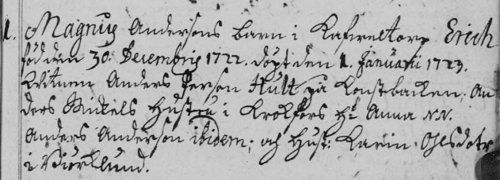 1. Magnus Andersons barn i Kafwetorp Erich
föd den 30 Decembris 1722. döpt den 1 Januarii 1723.
Witnen Anders Person Hult på Konstbacken; An-
ders Mickels Hustru i Krokfors h: Anna N.N.
Anders Anderson ibidem; och Hust: Karin Olsdotr
i Biörklund.